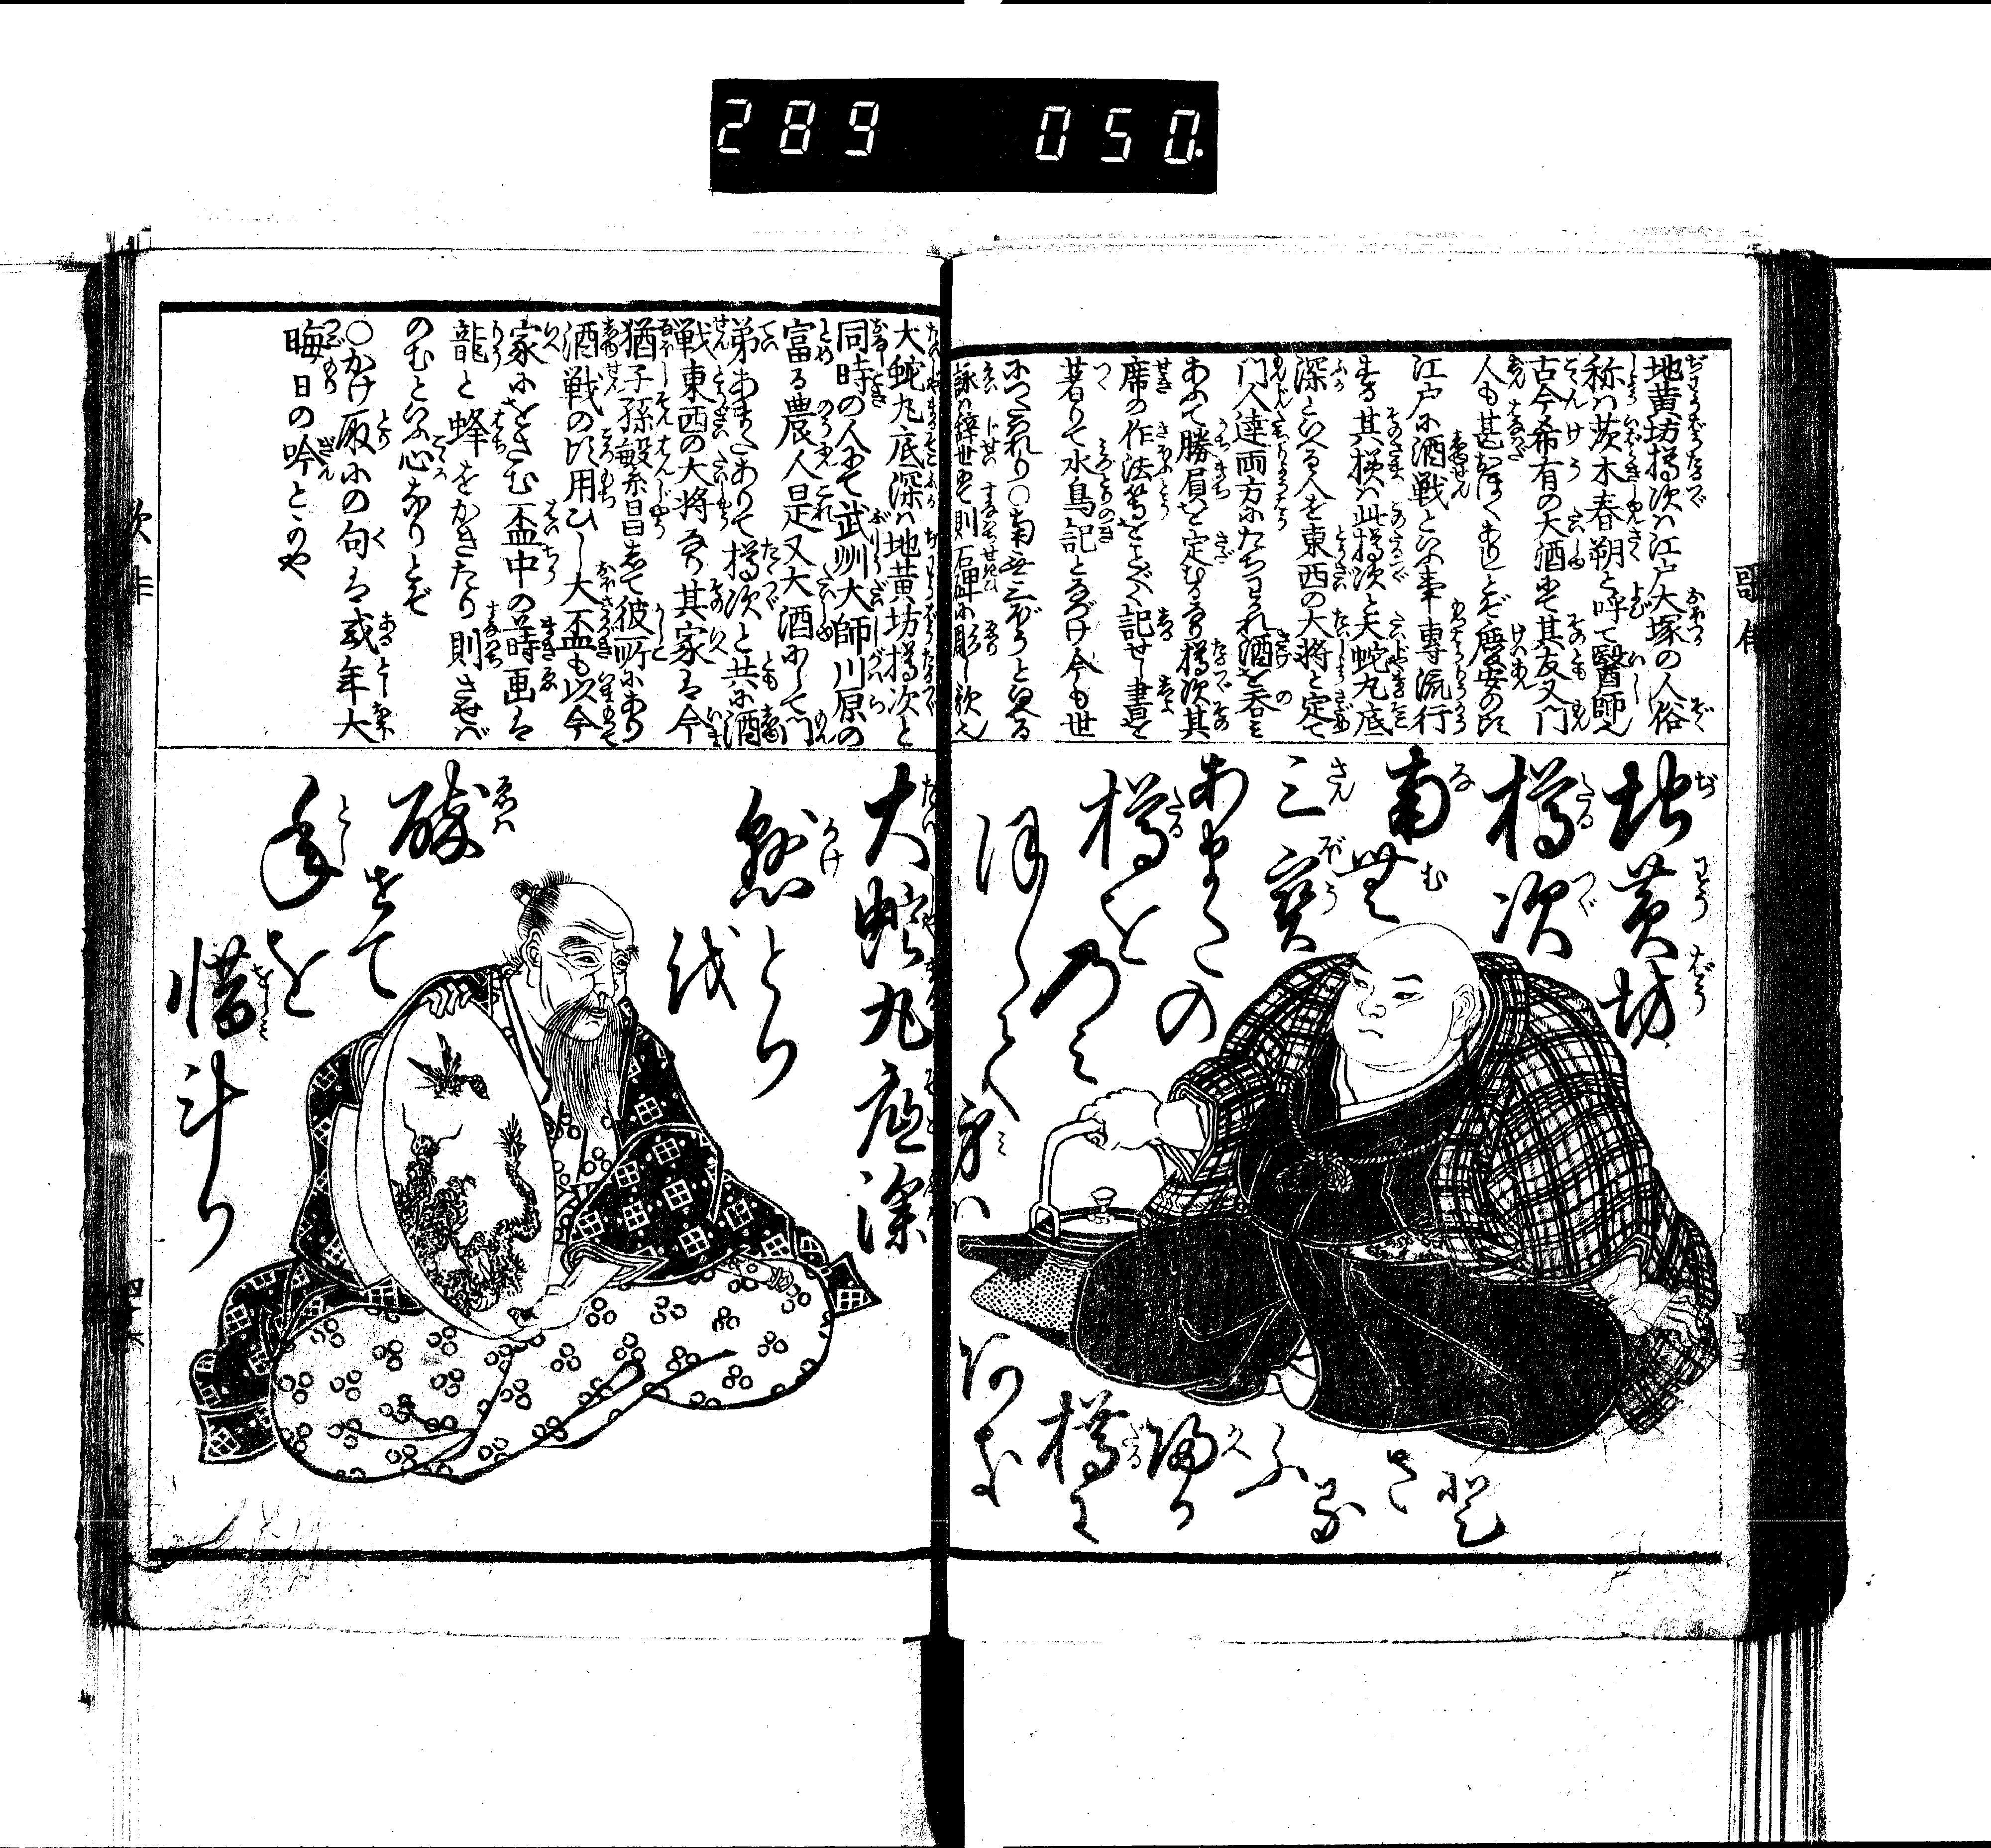 289 050.
地黄坊樽次ハ江戸大塚の人俗
称ハ茨木春朔と呼て醫師也
古今希有の大酒にて其友又門
人も甚おほくありとぞ慶安の頃
江戸に酒戦といふ事専流行
せる其様ハ此樽次と大蛇丸底
深といへる人を東西の大将と定て
門人達両方にたちわかれ酒を呑
あふて勝負を定むる 樽次其
席の作法 記せし書を
著りて水鳥記となづけ今も世
につたはれり〇南無三ぼうと
詠ハ辞世にて則石碑に彫し歌也
地黄坊
樽次
南無
三寳
あまたの
樽を
のみ
ほして
身ハ
あき
樽に
帰る
ふる
さと
大蛇丸底深ハ地黄坊樽次と
同時の人にて武州大師川原の
富る農人是又大酒にして門
弟あまたありて樽次と共に酒
戦東西の大将 其家は今
猶子孫繁昌して彼所にあり
酒戦の頃用ひし大盃も以今
家にをさむ盃中の蒔画は
龍と蜂をかきたり則させば
のむといふ心なりとぞ
〇かけ取にの句は或年大
晦日の吟とかや
大蛇丸底深
懸とり

酔せて
年を
惜斗り